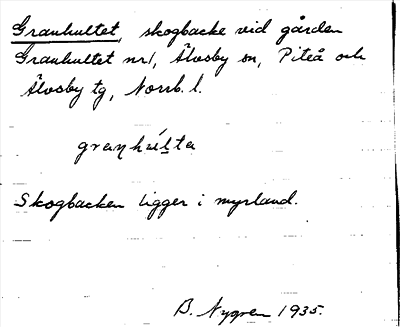 Granhultet, skogbacke vid gården
Granhultet nr1, Älvsby sn, Piteå och
Älvsby tg, Norrb. l.
Skogbacken ligger i myrland.
B. Nygren 1935.